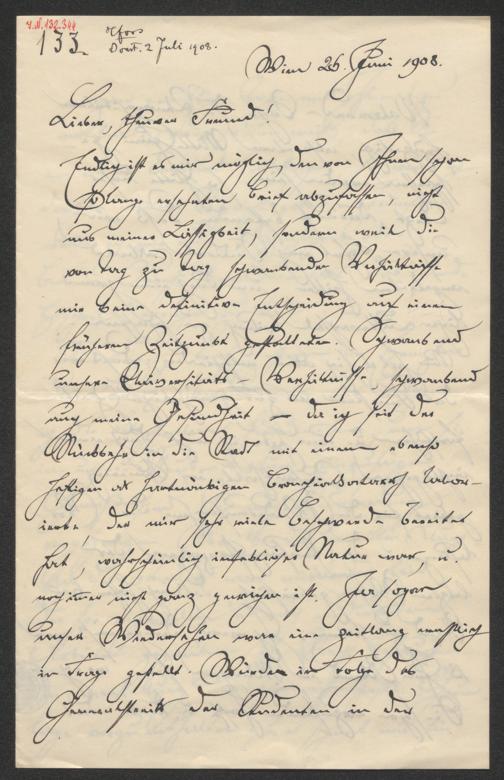 4.N.132.344
133.
Dort. 2 Juli 1908.
Wien 26. Juni 1908.
Lieber, theurer Freund!
Endlich ist es mir möglich, den von Ihnen schon
so lange ersehnten Brief abzufassen, nicht
aus meiner Lässigkeit, sondern weil die
von Tag zu Tag schwankenden Verhältnisse
mir keine definitive Entscheidung auf einen
früheren Zeitpunkt gestatteten. Schwankend
unsere Universitäts-Verhältnisse, schwankend
auch meine Gesundheit – da ich seit der
Rückkehr in die Stadt mit einem ebenso
heftigen als hartnäckigen Bronchialkatarrh labor-
ierte, der mir sehr viele Beschwerde bereitet
hat, wahrscheinlich infectiöser Natur war, u.
noch immer nicht ganz gewichen ist. Ja sogar
unser Wiedersehen war eine zeitlang ernstlich
in Frage gestellt. Würden in Folge des
Generalstreiks der Studenten in der